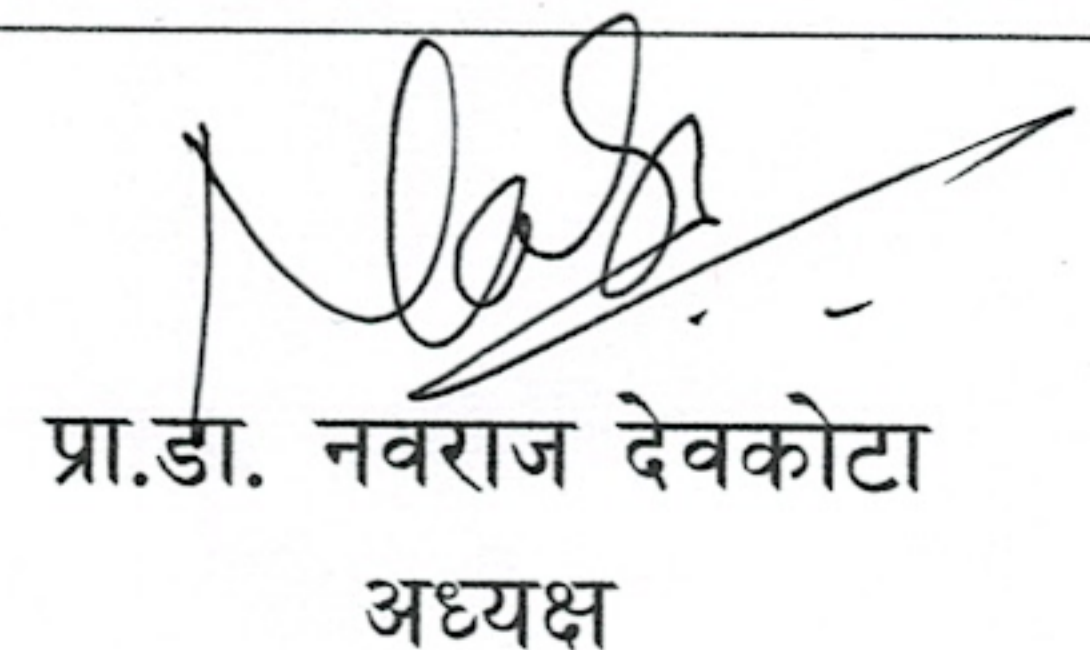 प्रा.डा. नवराज देवकोटा
अध्यक्ष